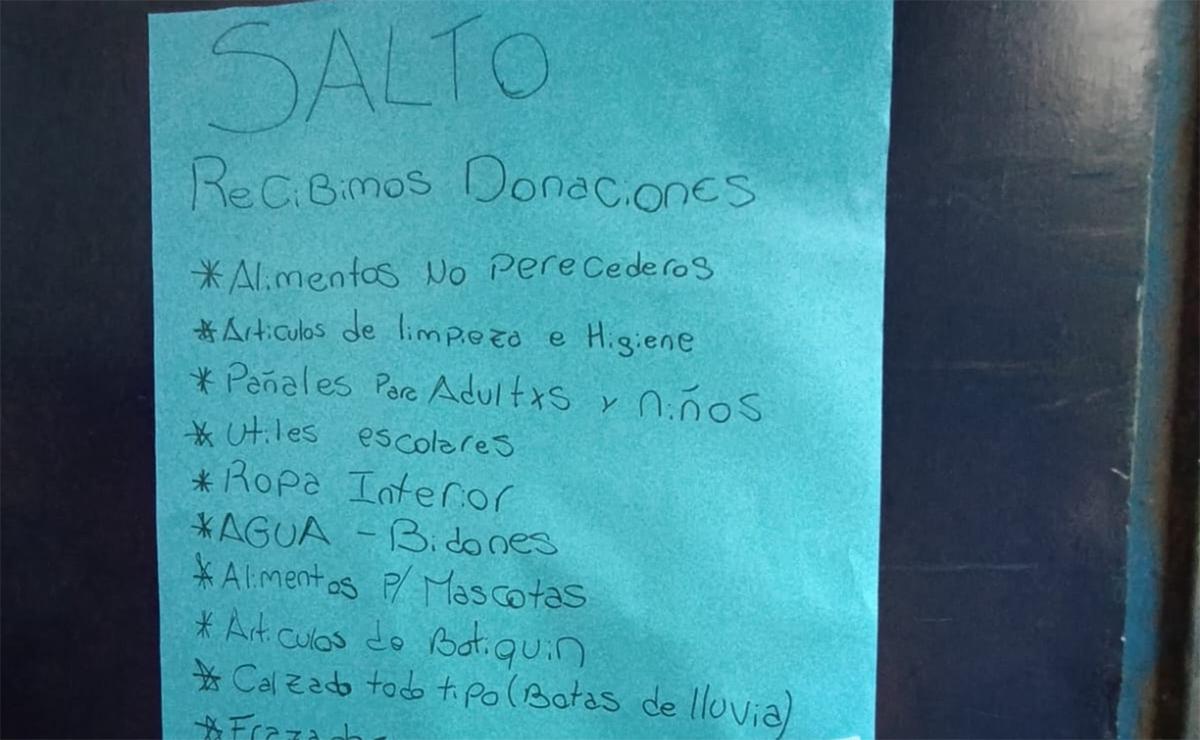 SALTO
Recibimos Donaciones
* Alimentos No Perecederos
* Articulos de limpieza e Higiene
* Pañales Para Adultxs y niños
* Utiles escolares
* Ropa Interior
* AGUA - Bidones
* Alimentos P/ Mascotas
* Articulos de Botiquin
* Calzado todo tipo (Botas de lluvia)